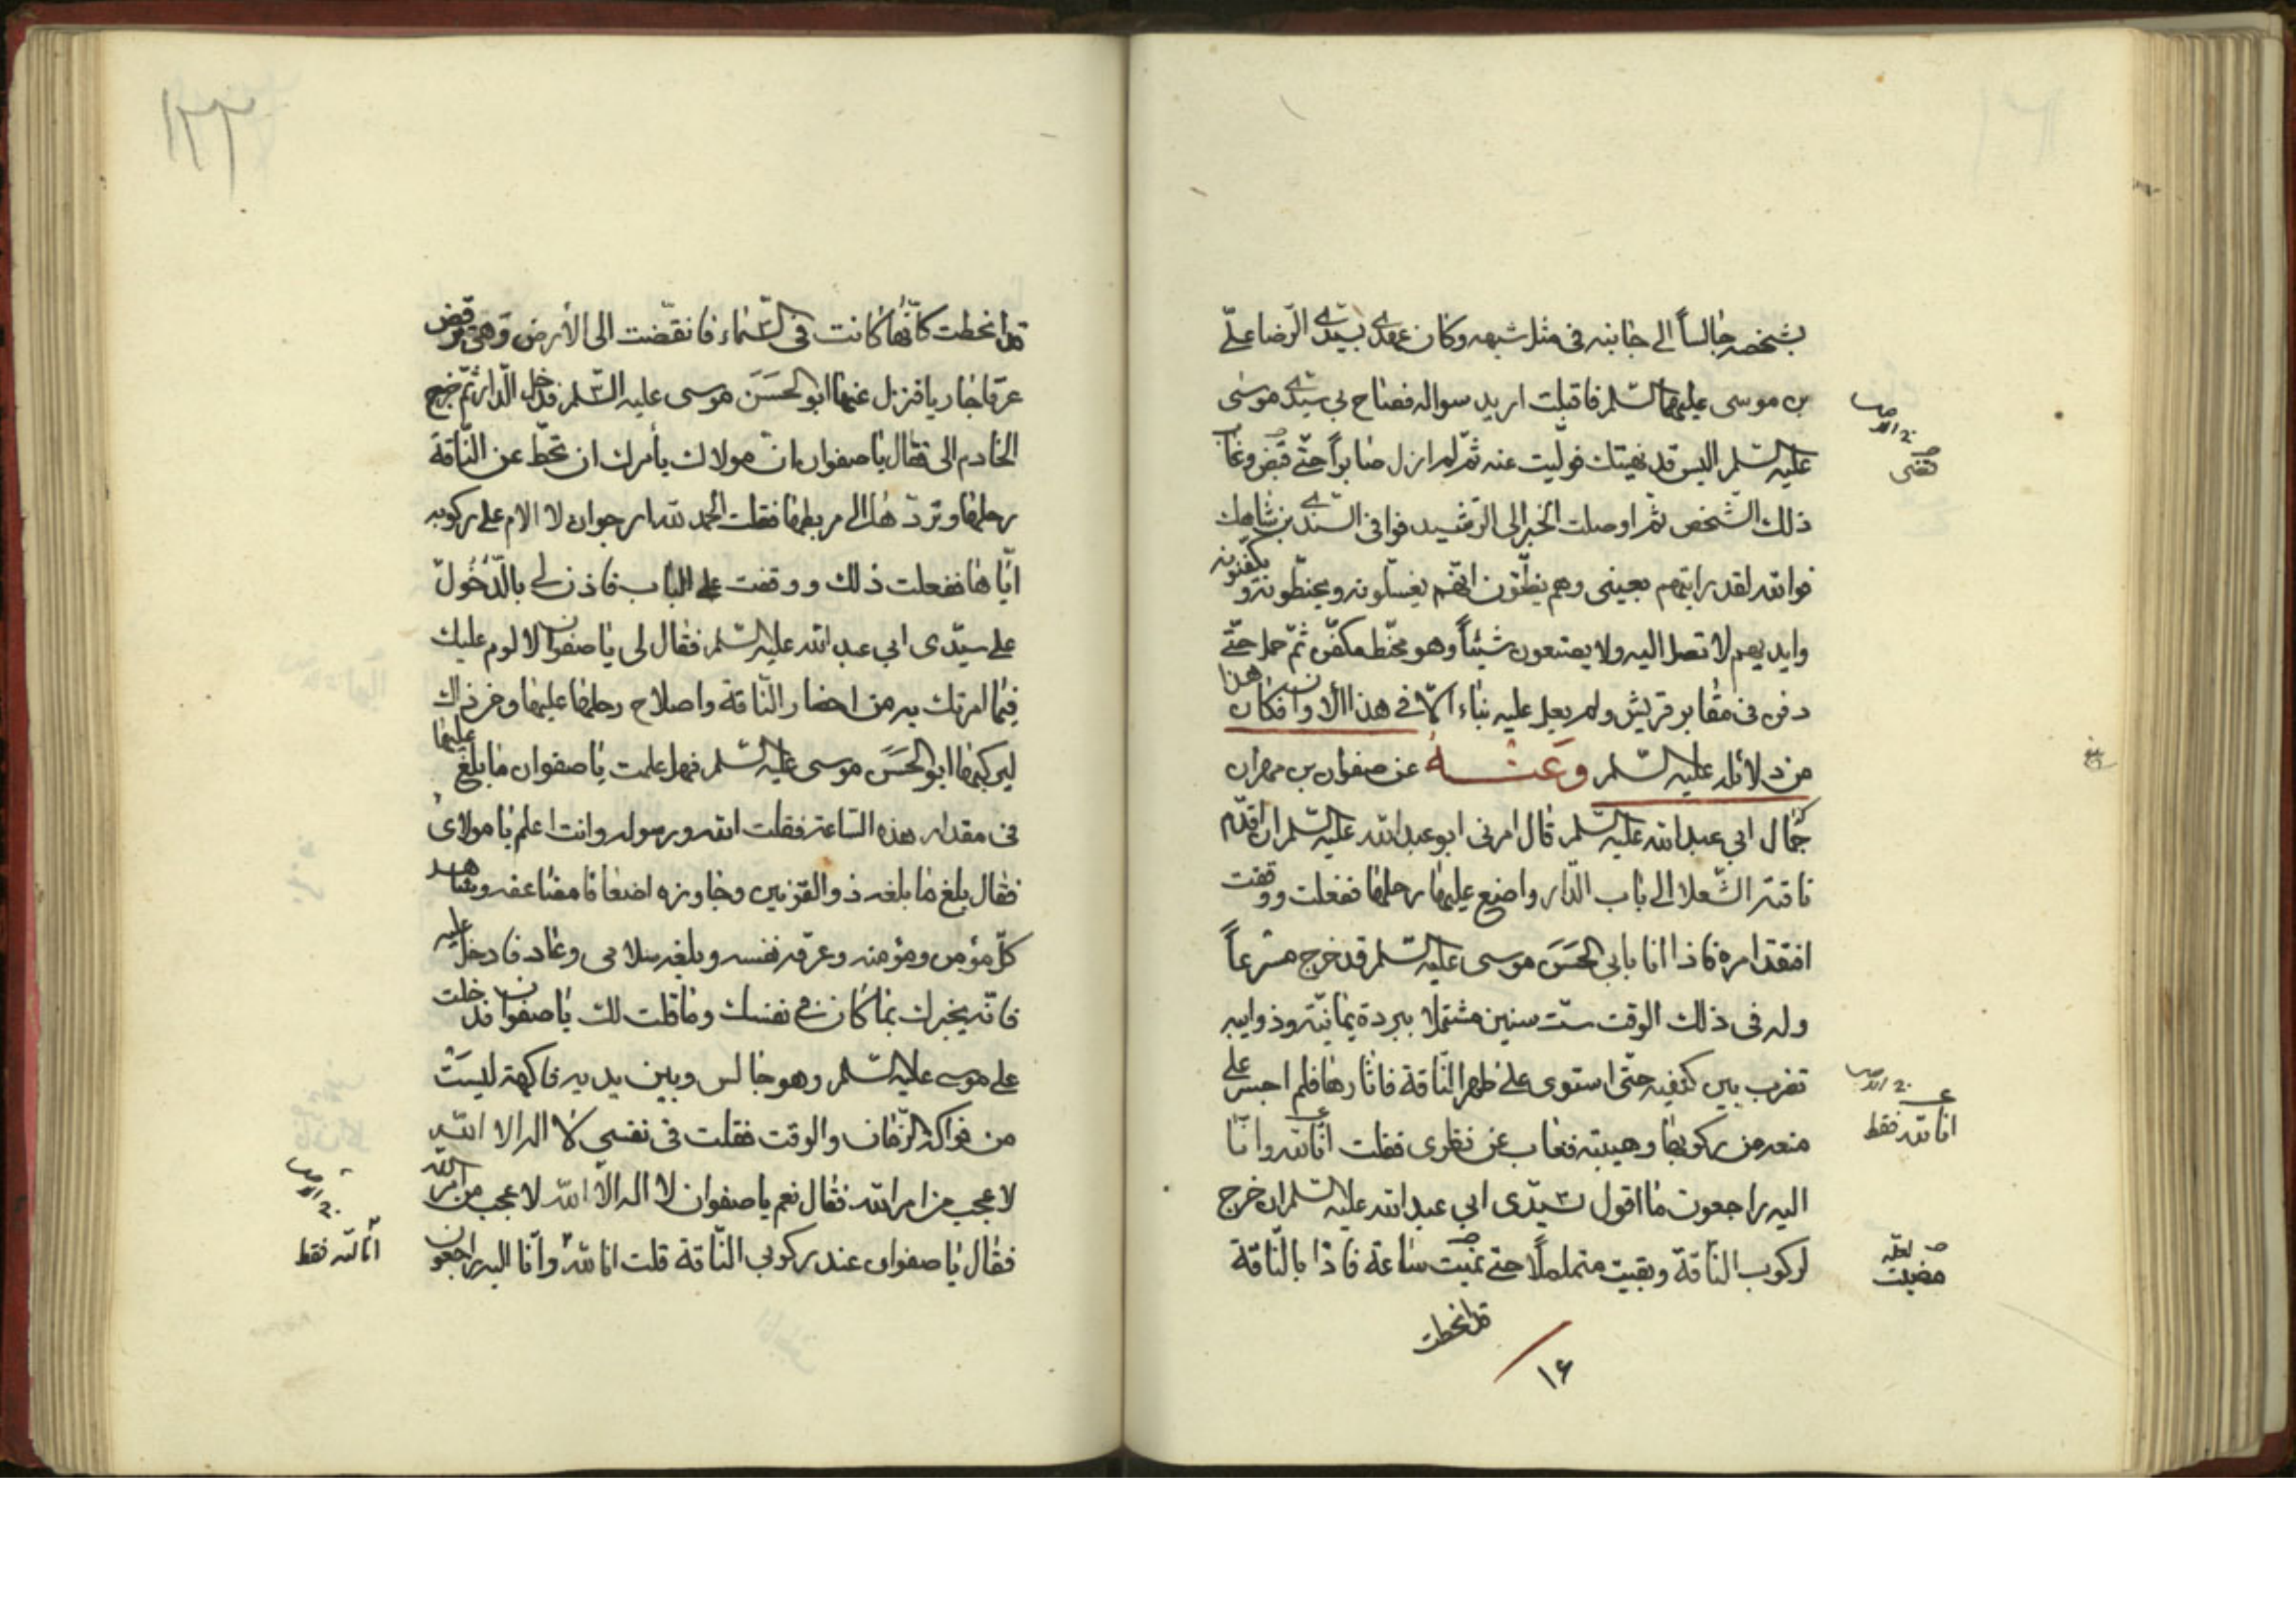 بشخصه جالساً الى جانبه فى مثل شبهه وكان عهدى بسيدى الرضا علىّ
بن موسى عليهما السّلم فاقبلت اريد سواله فصاح بى سيدى موسى
عليه السّلم اليس قد نهيتك فوليت عنه ثمّ لم ازل صابراً حتّى قبض وغاب
ذلك الشّخص ثمّ اوصلت الخبر الى الرّشيد فوافى السندى بن شاهك
فوالله لقد رايتهم بعينى وهم يظنّون انّهم يغسّلونه ويحنّطونه ويكفنونه
وايديهم لا تصل اليه ولا يصنعون شيئاً وهو محنّط مكفّن ثمّ حمل حتّى
دفن فى مقابر قريش ولم يعل عليه بناء الّا فى هذا الاوان فكان هذا
من دلائله عليه السّلم وعنه عن صفوان بن مهران
جمّال ابي عبد الله عليه السّلم قال امرنى ابو عبد الله عليه السّلم ان اقدّم
ناقته الشّعلا الى باب الدّار واضع عليها رحلها ففعلت ووقفت
افتقد امره فاذا انا بابي الحَسَن موسى عليه السّلم قد خرج مسرعاً
وله فى ذلك الوقت ستّ سنين مشتملا ببردة يمانيّة وذوايبه
تضرب بين كتفيه حتّى استوى على ظهر النّاقة فاثارها فلم اجسر على
منعه من ركوبها وهيبته فغاب عن نظرى فقلت انّا لله وانّا
اليه راجعون ما اقول لسيّدى ابي عبد الله عليه السّلم ان خرج
لركوب النّاقة وبقيت متململًا حتى مضيت ساعة فاذا بالنّاقة
قد انحطت
١۶
قضى
انا لله فقط
لعلّه
مضيت
١٢٢
قد انحطت كانّها كانت فى السّماء فانقضّت الى الأرض وهى ترفض
عرقا جاريا فنزل عنها ابو الحَسَن موسى عليه السّلم فدخل الدّار ثمّ خرج
الخادم الى فقال يا صفوان انّ مولاك يأمرك ان تحطّ عن النّاقة
رحلها وتردّها الى مربطها فقلت الحمد لله ارجوان لا الام على ركوبه
ايّاها ففعلت ذلك ووقفت على الباب فاذن لى بالدّخول
على سيّدى ابي عبد الله عليه السّلم فقال لى يا صفوان لا لوم عليك
فيما امرتك به من احضار النّاقة واصلاح رحلها عليها وخر ذاك
ليركبها ابو الحَسَن موسى عليه السّلم فهل علمت يا صفوان ما بلغ عليها
فى مقدار هذه السّاعة فقلت الله ورسوله وانت اعلم يا مولاى
فقال بلغ ما بلغه ذو القرنين وجاوزه اضعافا مضاعفه وشاهد
كلّ مؤمن ومؤمنه وعرّفه نفسه وبلغه سلامى وعاد فادخل عليه
فانّه يخبرك بما كان فى نفسك وما قلت لك يا صفوان فدخلت
على موسى عليه السّلم وهو جالس وبين يديه فاكهة ليست
من فواكه الزّمان والوقت فقلت فى نفسى لا اله الا الله
لا عجب من امر الله فقال نعم يا صفوان لا اله الّا الله لا عجب من امر الله
فقال يا صفوان عند ركوبي النّاقة قلت انا لله وانّا اليه راجعون
انا لله فقط